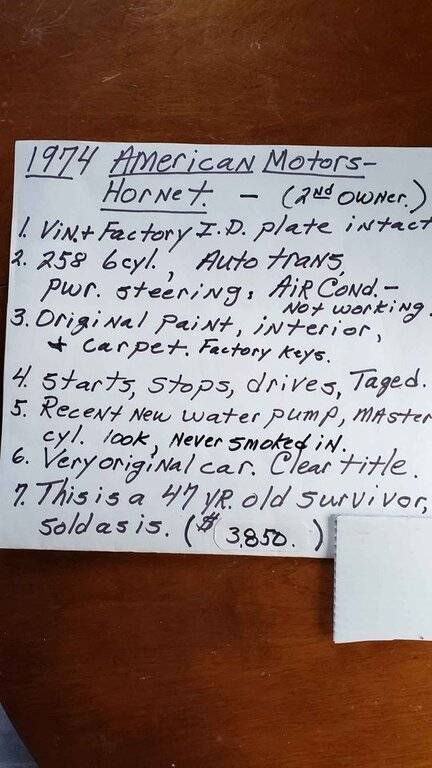 1974 American Motors-
Hornet. - (2nd owner.)
1. Vin.+ Factory I.D. plate intact
2. 258 6cyl., Auto trans,
pwr. steering, Air Cond.-
Not working.
3. Original paint, interior,
+ carpet. Factory Keys.
4. Starts, stops, drives, Taged.
5. Recent New water pump, master
cyl. 100K, Never smoked in.
6. Very original car. Clear title.
7. This is a 47 yr. old survivor,
sold as is. ($ 3,850. )